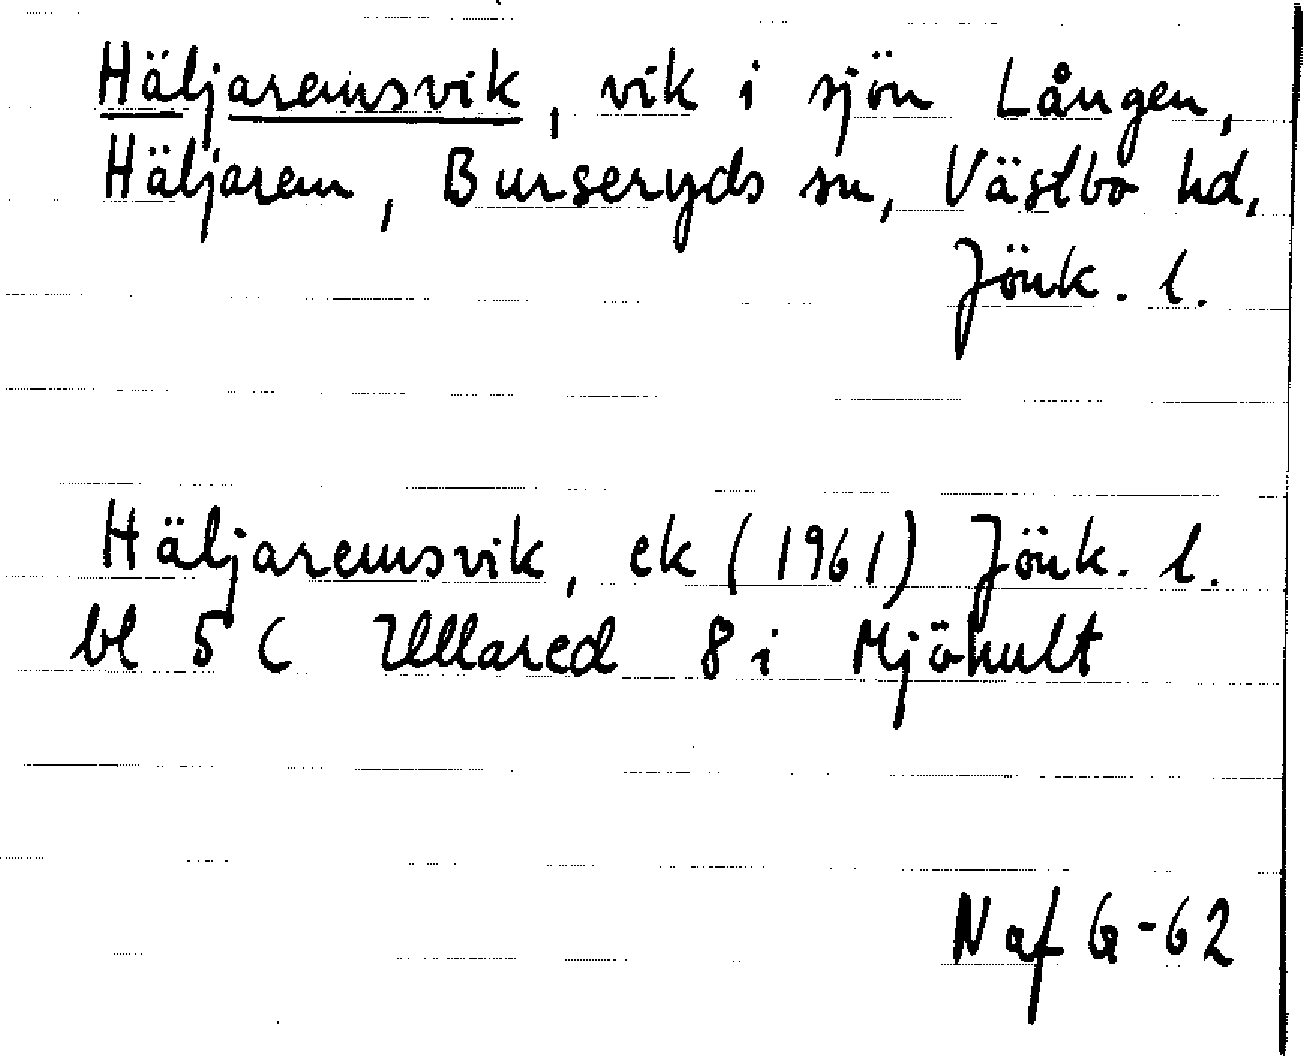 Häljaremsvik, vik i sjön Lången,
Häljarem, Burseryds sn, Västbo hd,
Jönk. l.
Häljaremsvik, ek (1961) Jönk. l.
bl 5 C Ullared 8 i Mjöhult
N af G-62